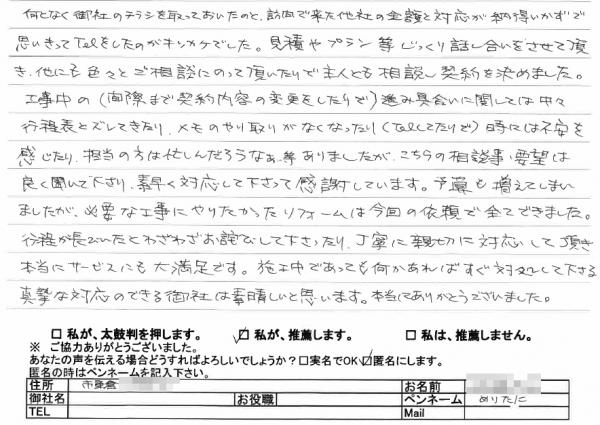 何となく御社のチラシを取っておいたのと、訪問で来た他社の金額と対応が納得いかずで
思いきってTelをしたのがキッカケでした。見積やプラン等じっくり話し合いをさせて頂
き、他にも色々とご相談にのって頂いたりで主人とも相談し契約を決めました。
工事中の(直前まで契約内容の変更をしたりで)進み具合いに関しては中々
行程表とズレてきたり、メモのやり取りがなくなったり(Telしてたりで)時には不安を
感じたり、担当の方は忙しんだろうなぁ等ありましたが、こちらの相談事・要望は
良く聞いて下さり、素早く対応して下さって感謝しています。予算も増えてしまい
ましたが、必要な工事にやりたかったリフォームは今回の依頼で全てできました。
行程が長びいたとわざわざお詫びして下さったり、丁寧に親切に対応して頂き
本当にサービスにも大満足です。施工中であっても何かあればすぐ対処して下さる
真摯な対応のできる御社は素晴しいと思います。本当にありがとうございました。
□ 私が、太鼓判を押します。 ☑ 私が、推薦します。 □ 私は、推薦しません。
※ ご協力ありがとうございました。
あなたの声を伝える場合どうすればよろしいでしょうか？□実名でOK ☑匿名にします。
匿名の時はペンネームを記入下さい。
住所 お名前
御社名 お役職 ペンネーム ありたに
TEL Mail